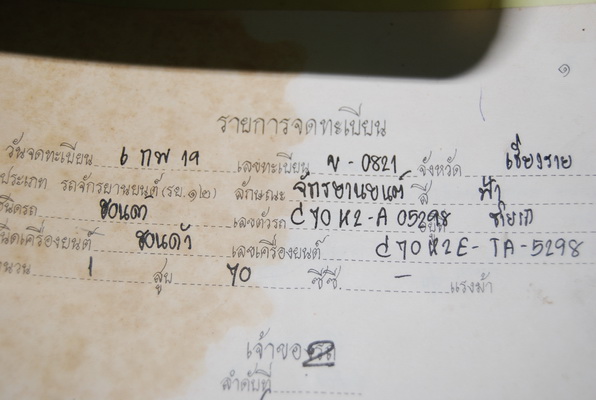 ๑
รายการจดทะเบียน
วันจดทะเบียน 6 กพ 19 เลขทะเบียน ข - 0821 จังหวัด เชียงราย
ประเภท รถจักรยานยนต์ (รย.๑๒) ลักษณะ จักรยานยนต์ สี ฟ้า
นิดรถ ฮอนด้า เลขตัวรถ C70 K2-A 05298 อยู่ที่
นิดเครื่องยนต์ ฮอนด้า เลขเครื่องยนต์ C70 K2E-TA-5298
นวน 1 สูบ 70 ซีซี - แรงม้า
เจ้าของรถ
ลำดับที่